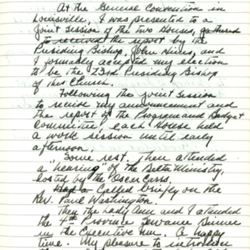 At the General Convention in
Louisville, I was presented to a
Joint Session of the Two Houses, gathered
to receive the report by the
Presiding Bishop, John Hines, and
I formally accepted my election
to be the 23rd Presiding Bishop
of this Church.
Following the joint session
to receive my announcement and
the report of the Program and Budget
Committee, each House held
a work session until early
afternoon.
Some rest. Then attended
a "hearing" of the Ministry,
hosted by the
Called briefly on the
Rev. Paul Washington.
Then the lady Ann and I attended
the Province Dinner
in the Executive Inn. A happy
time. My pleasure to introduce